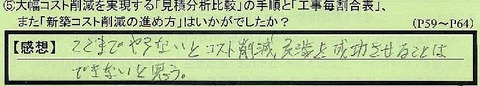 ⑤大幅コスト削減を実現する「見積分析比較」の手順と「工事毎割合表」、
また「新築コスト削減の進め方」はいかがでしたか？ (P59～P64)
【感想】ここまでやらないとコスト削減、交渉を成功させることは
できないと思う。